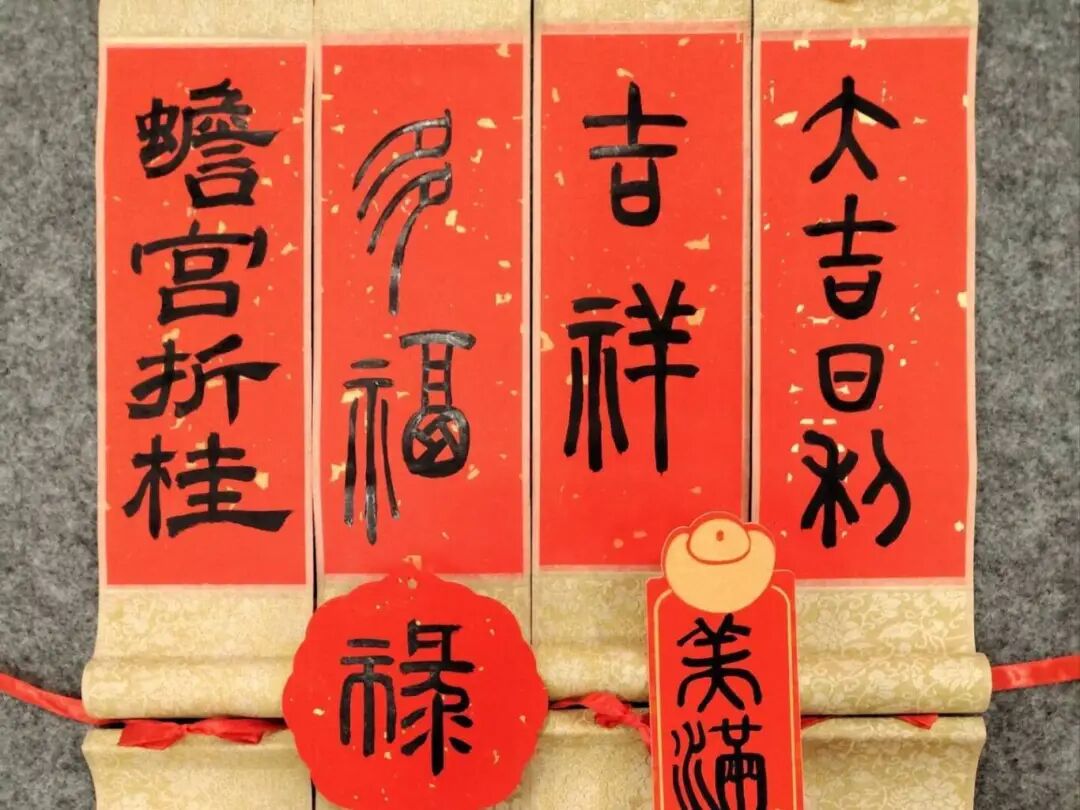 大吉日利
吉祥
多福
蟾宫折桂
美满
禄